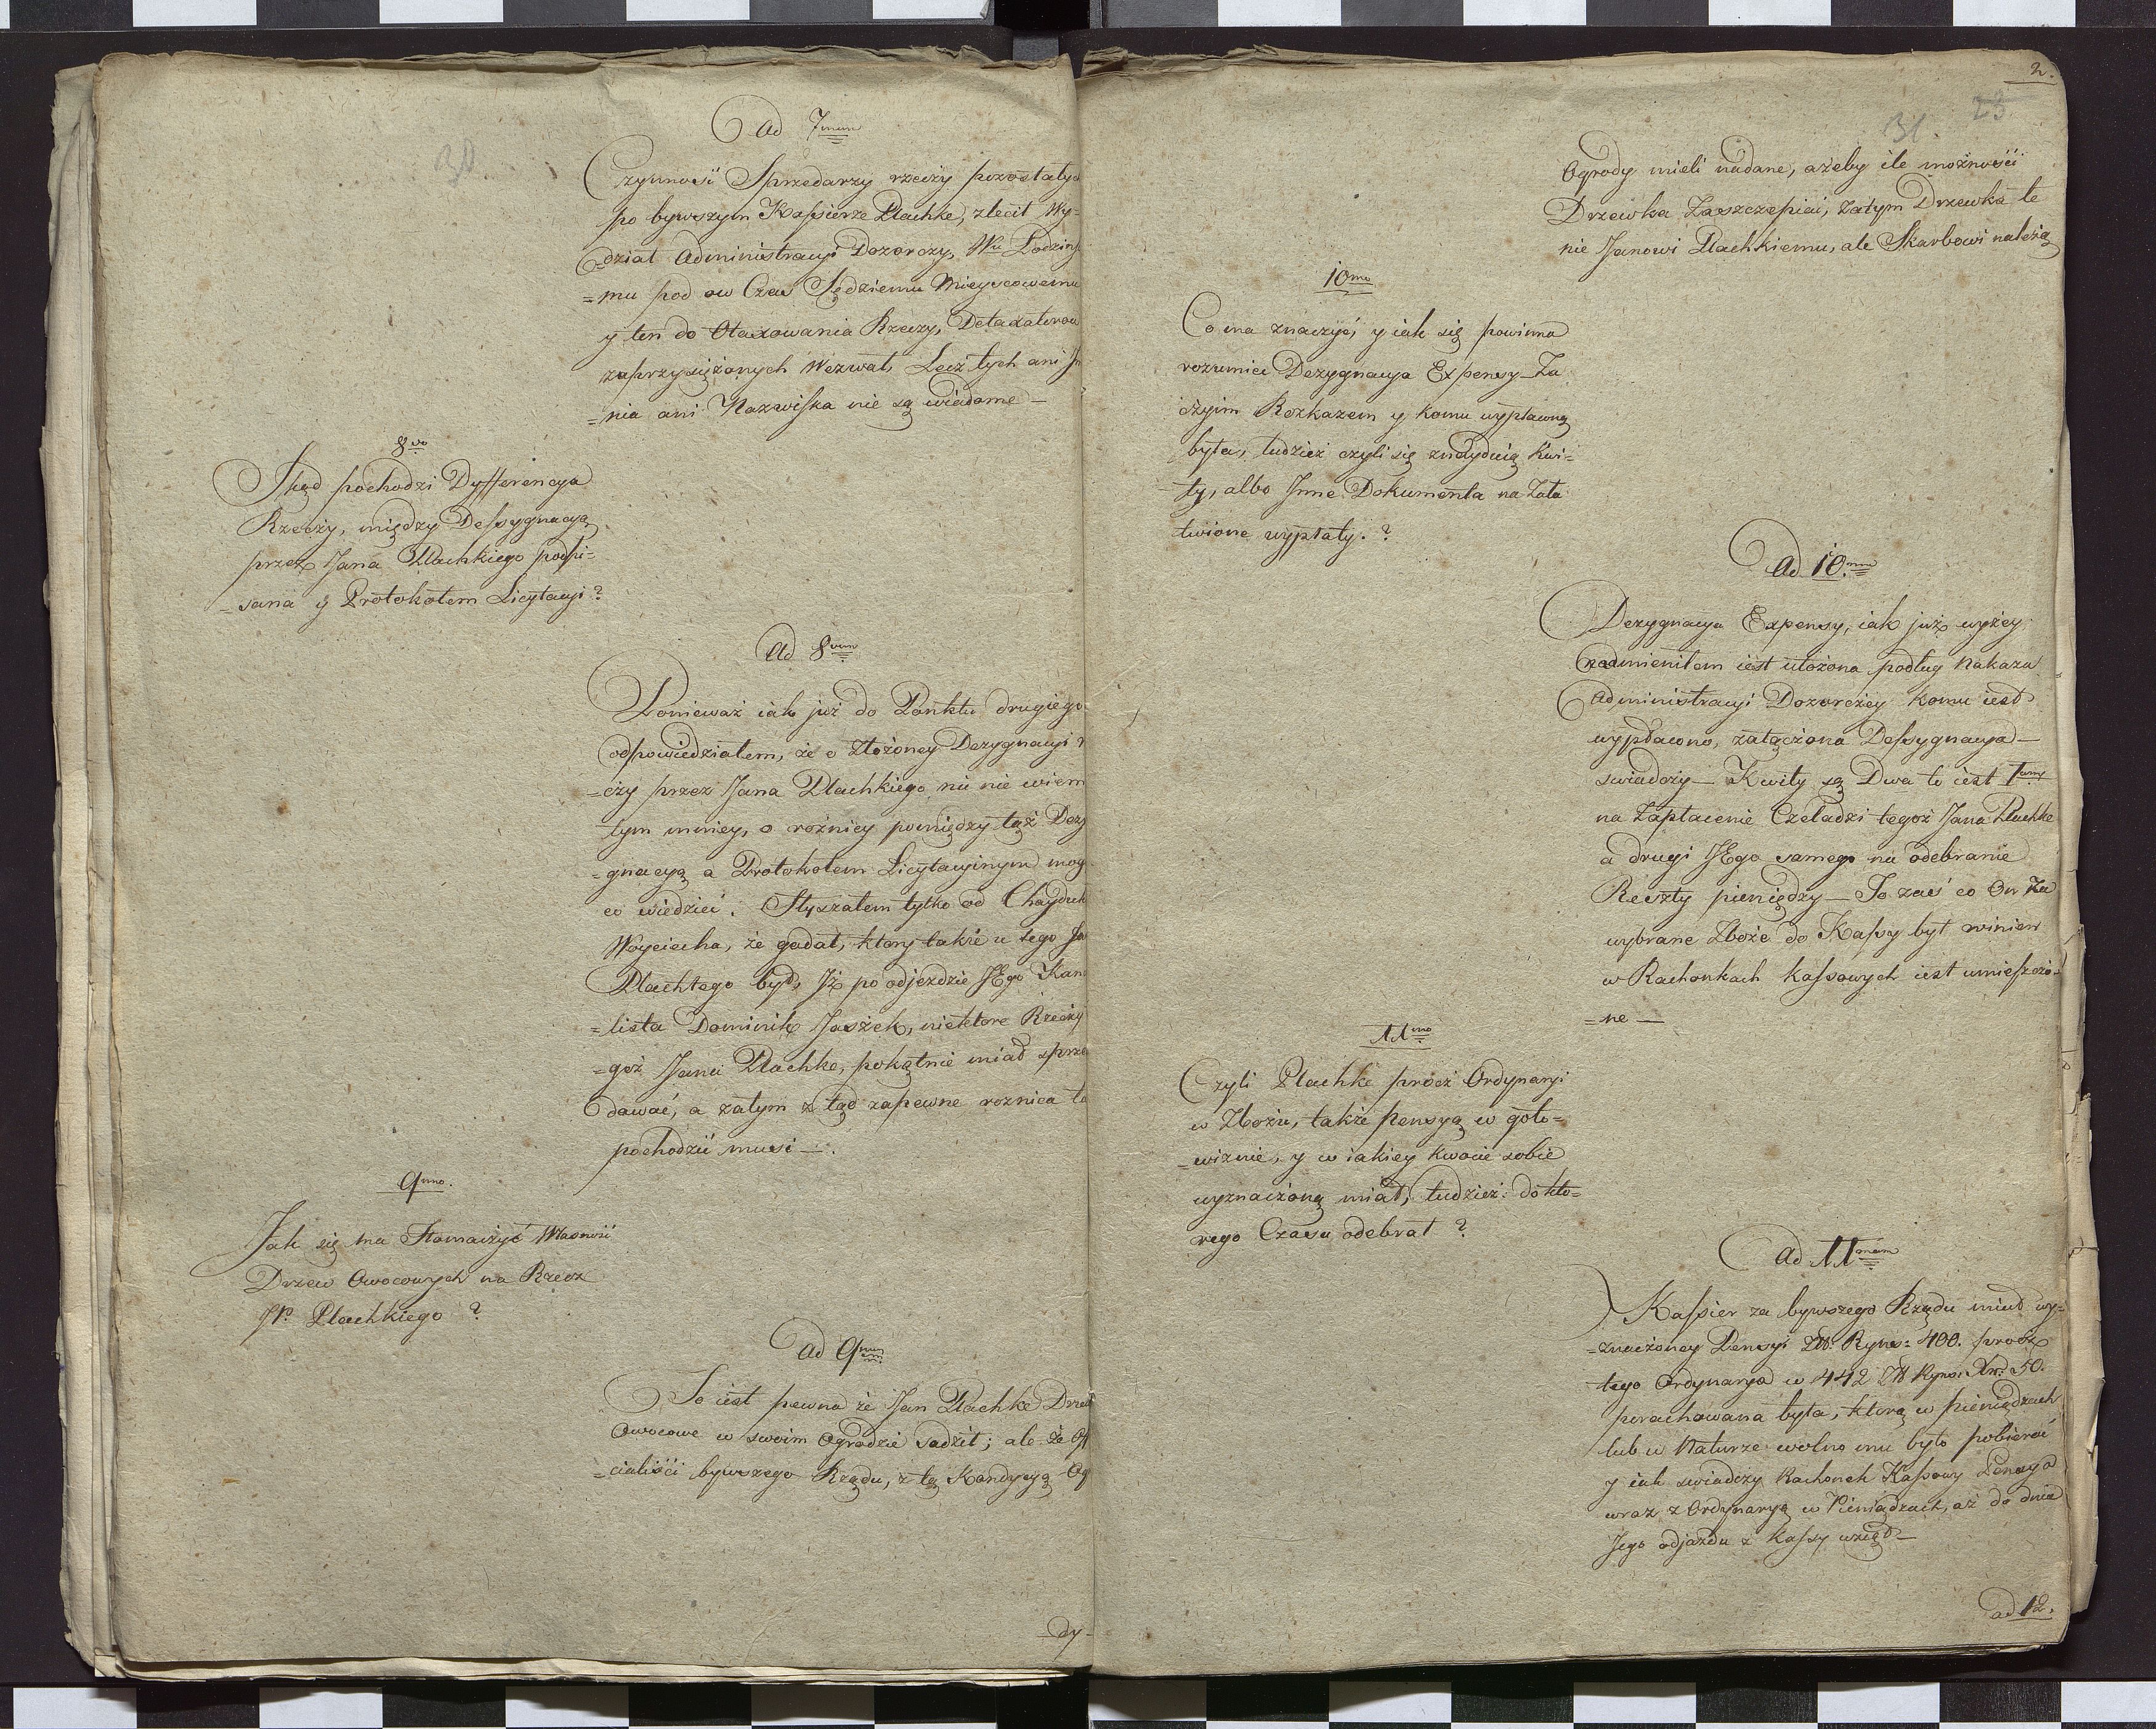 30
Ad 7mum
Czynność Sprzedarzy rzeczy pozostałych
po bywszym Kassierze Plachke, zlecił Wy=
=dział Administracyi Dozorczy, Wu
=mu pod ow Czas Sędziemu Mieyscowemu
y ten do Otaxowania Rzeczy, Detaxatorow
zaprzysiężonych Wezwał, Lecz tych ani Jm
=nia ani Nazwiska nie są wiadome —
8vo
Skąd pochodzi Dyfferencya
Rzeczy, między Dessygnacyą
przez Jana Plachkiego podpi=
=sana y Protokołem Licytacyi?
Ad 8vum
Ponieważ iak już do Punktu drugiego
odpowiedziałem, że o Złożoney Dezygnacyi
=czy przez Jana Plachkiego nic nie wiem
tym mniey, o rożnicy pomiędzy tąż Dezy
=gnacyą a Protokołem Licytacyinym mog
co wiedzieć. Słyszałem tylko od Chayduk
Woyciecha, że gadał, ktory także u tego Ja
Plachtego był, Jż po odjezdzie JEgo Kan
=lista Dominik Jaszek, niektore Rzeczy
=goż Jana Plachke, pokątnie miał sprze
dawać, a zatym z tąd zapewne roznica ta
pochodzić musi —.
9nno.
Jak się ma Tłomaczyć Własność
Drzew Owocowych na Rzecz
JP. Plachkiego?
Ad 9num
To iest pewna że Jan Plachke Drzew
Owocowe w swoim Ogrodzie sadził; ale że Offi
=cialiści bywszego Rządu, z tą Kondycyą Og
dy
2.
23
31
Ogrody mieli nadane, ażeby ile możności
Drzewka Zaszczepiać, zatym Drzewka te
nie Janowi Plachkiemu, ale Skarbowi należą
10mo
Co ma znaczyć, y iak się powinna
rozumieć Dezygnacya Expensy_ Za
czyim Rozkazem y komu wypłaconą
była, tudzież czyli się znayduią Kwi=
ty, albo Jnne Dokumenta na Zała
twione wypłaty.?
Ad 10.mum
Dezygnacya Expensy, iak już wyżey
nadmieniłem iest ułożona podług Nakazu
Administracyi Dozorczey Komu iest
wypłacono, załączona Dessygnacya —
swiadczy — Kwity są Dwa to iest 1wszy
na Zapłacenie Czeladzi tegoż Jana Plachke
a drugi JEgo samego na odebranie
Reszty pieniędzy — To zaś co On Za
wybrane Zboże do Kassy był winien
w Rachonkach kassowych iest umieszczo=
=ne —
11mo
Czyli Plachke procz Ordynaryi
w Zbożu, także pensyą w goto=
=wiznie, y w iakiey kwocie sobie
wyznaczoną miał, tudzież: do kto=
rego Czasu odebrał?
Ad 11mum
Kassier za bywszego Rządu miał wy=
=znaczoney Pensyi Zł. Ryns: 400. procz
tego Ordynarya w 442 Zł Ryns: Xr. 50.
porachowana była, ktorą w pieniądzach
lub w Naturze wolno mu było pobierać
y iak swiadczy Rachonek Kassowy Pensyą
wraz z Ordynaryą w Pieniądzach, aż do dnia
Jego odjazdu z Kassy wziął —
ad 12.